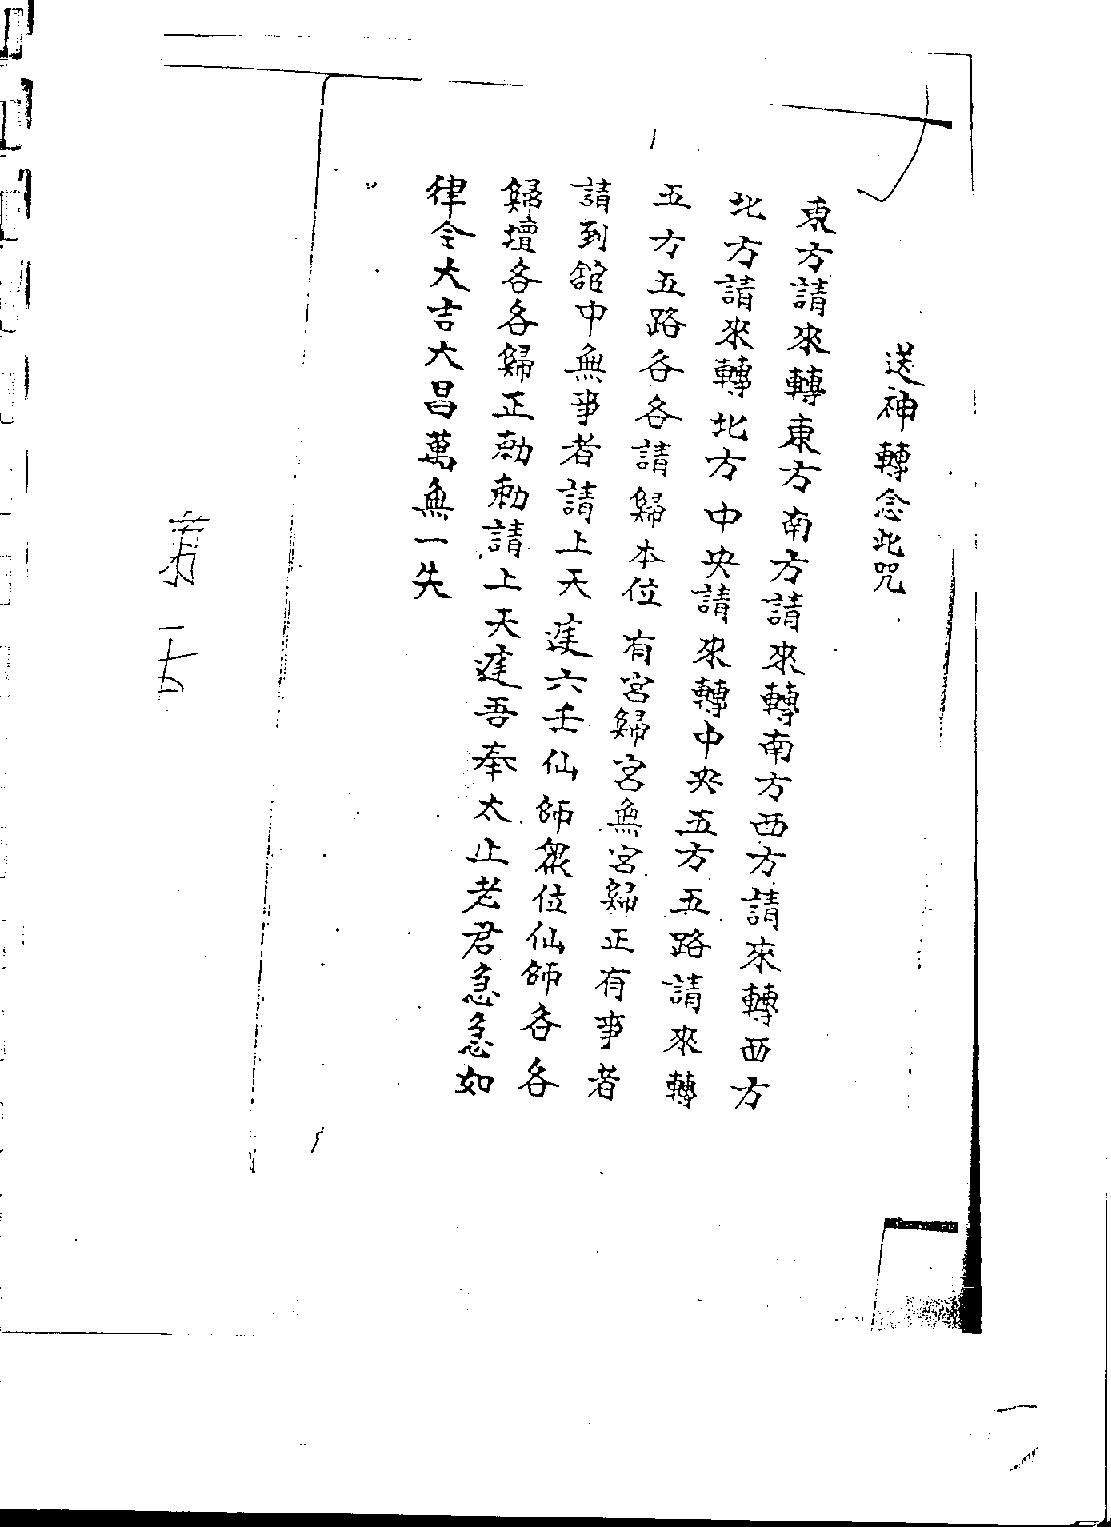 送神轉念此咒
東方請來轉東方南方請來轉南方西方請來轉西方
北方請來轉北方中央請來轉中央五方五路請來轉
五方五路各各請歸本位有宮歸宮無宮歸正有事者
請到舘中無事者請上天莛六壬仙師衆位仙師各各
歸壇各各歸正勅勅請上天莛吾奉太上老君急急如
律令大吉大昌萬無一失